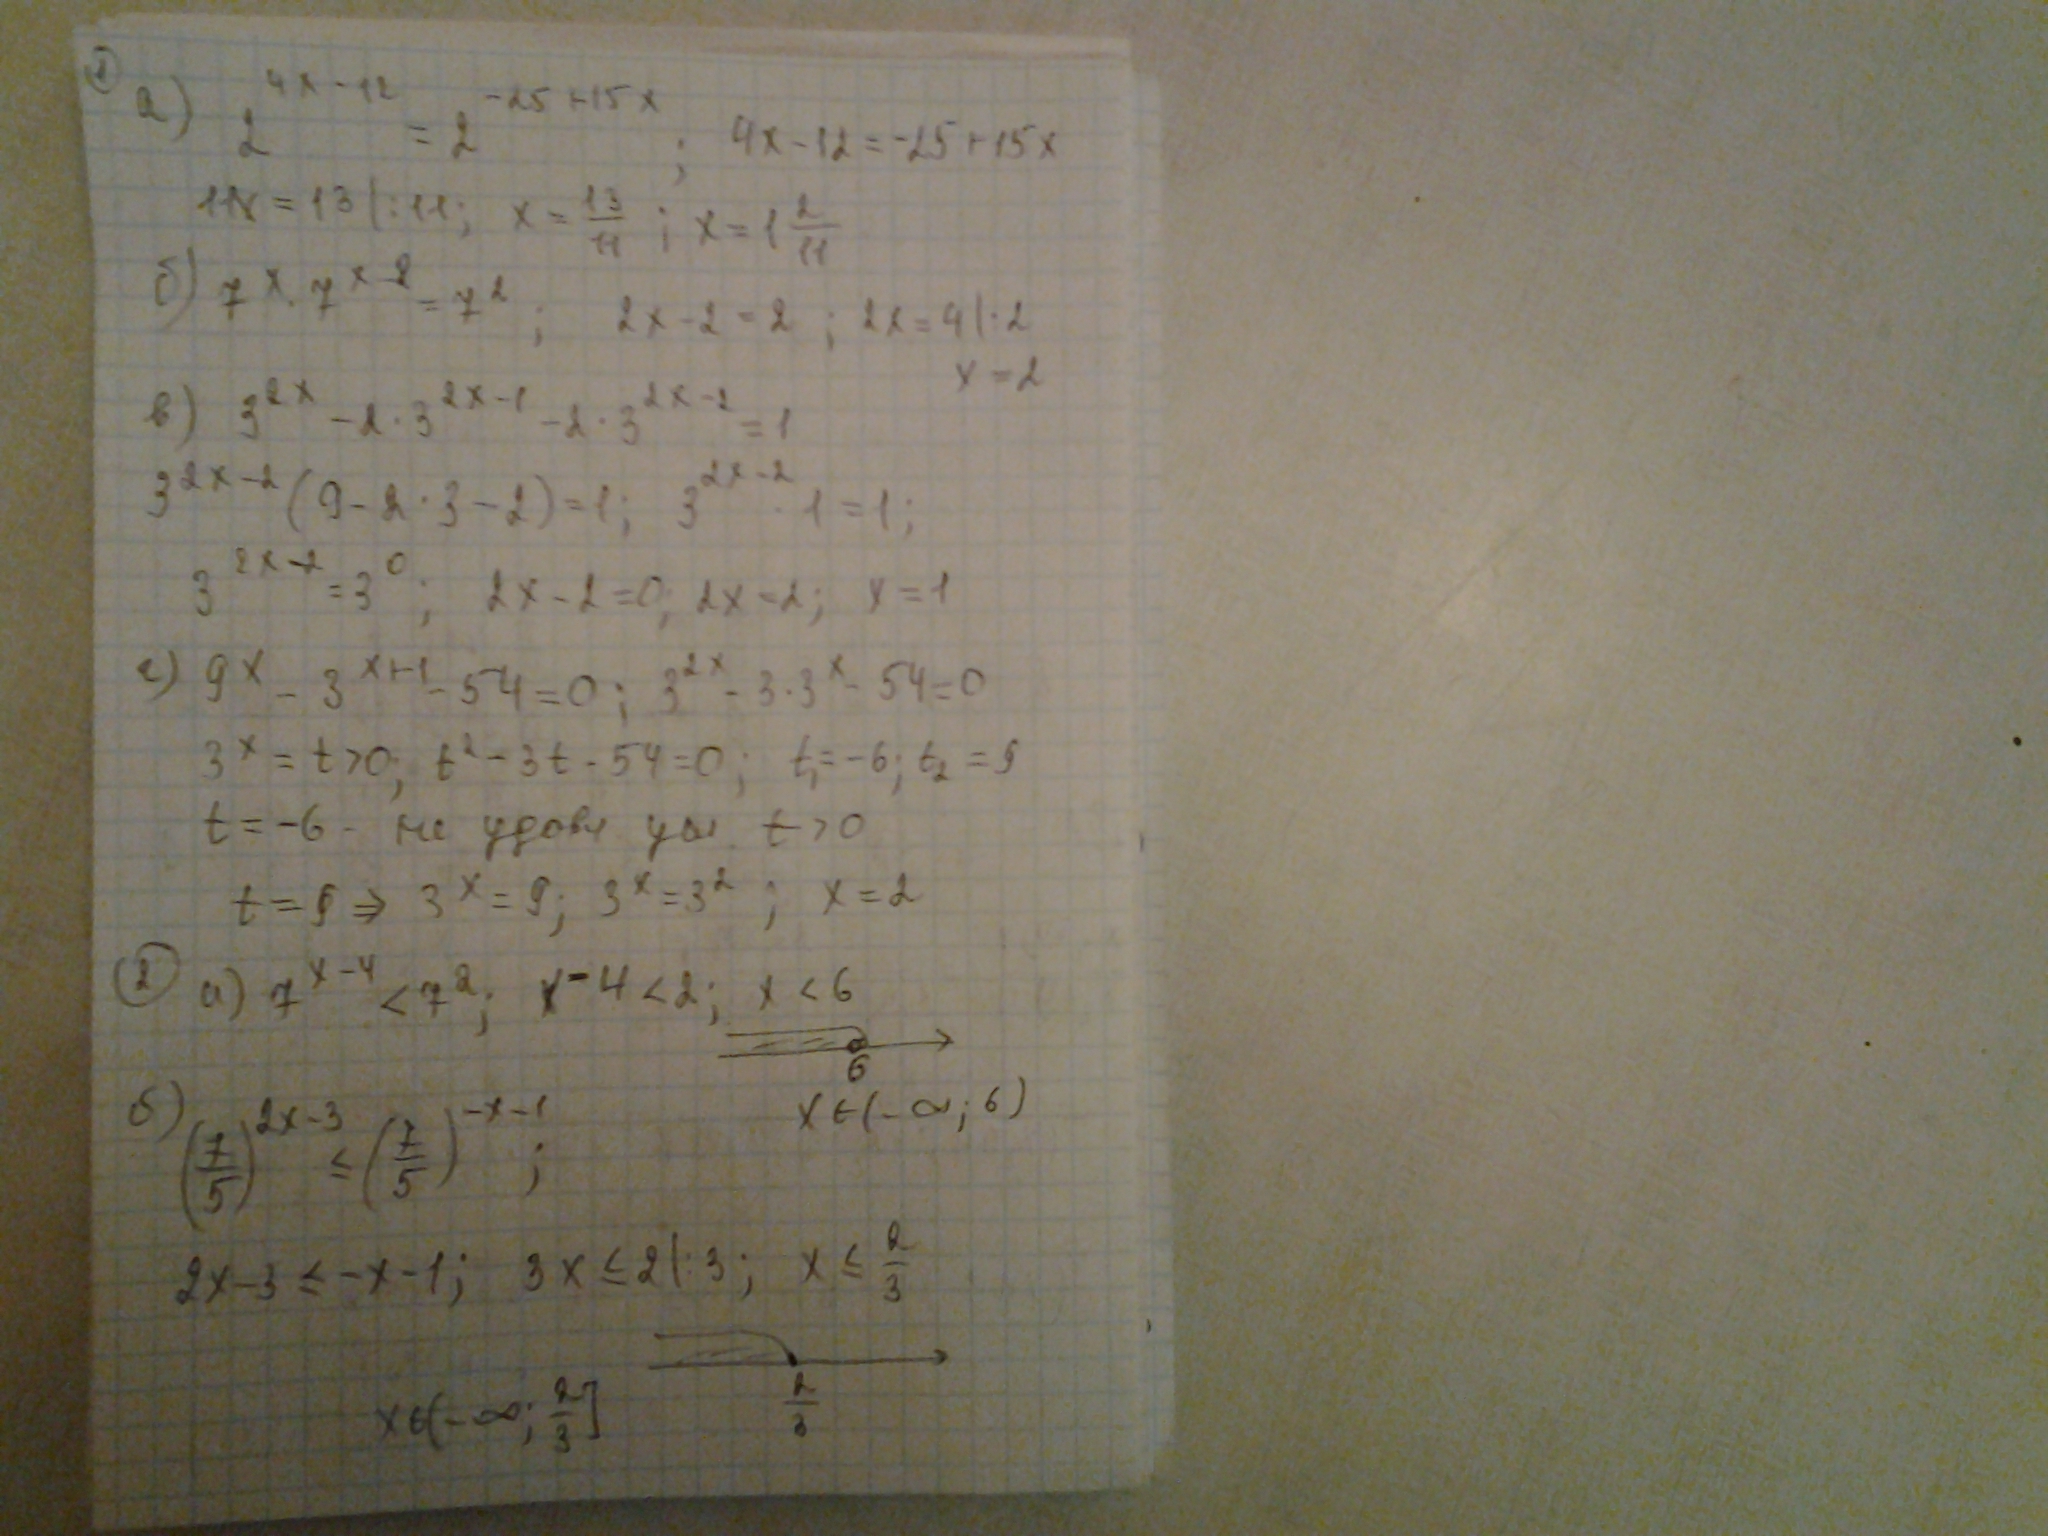 ①
а) 2^{4x-12} = 2^{-25+15x} ; 4x-12=-25+15x
11x=13|:11; x=\frac{13}{11} ; x=1\frac{2}{11}
б) 7^x·7^{x-2}=7^2 ; 2x-2=2 ; 2x=4|:2
x=2
в) 3^{2x}-2·3^{2x-1}-2·3^{2x-2}=1
3^{2x-2}(9-2·3-2)=1; 3^{2x-2}·1=1;
3^{2x-2}=3^0; 2x-2=0; 2x=2; x=1
г) 9^x-3^{x+1}-54=0; 3^{2x}-3·3^x-54=0
3^x=t>0; t^2-3t-54=0; t_1=-6; t_2=9
t=-6 - не удовл усл t>0
t=9 ⇒ 3^x=9; 3^x=3^2 ; x=2
② а) 7^{x-4}<7^2; x-4<2; x<6
6
x∈(-∞; 6)
б) (\frac{7}{5})^{2x-3} ≤ (\frac{7}{5})^{-x-1} ;
2x-3≤-x-1; 3x≤2|:3; x≤\frac{2}{3}
\frac{2}{3}
x∈(-∞; \frac{2}{3}]